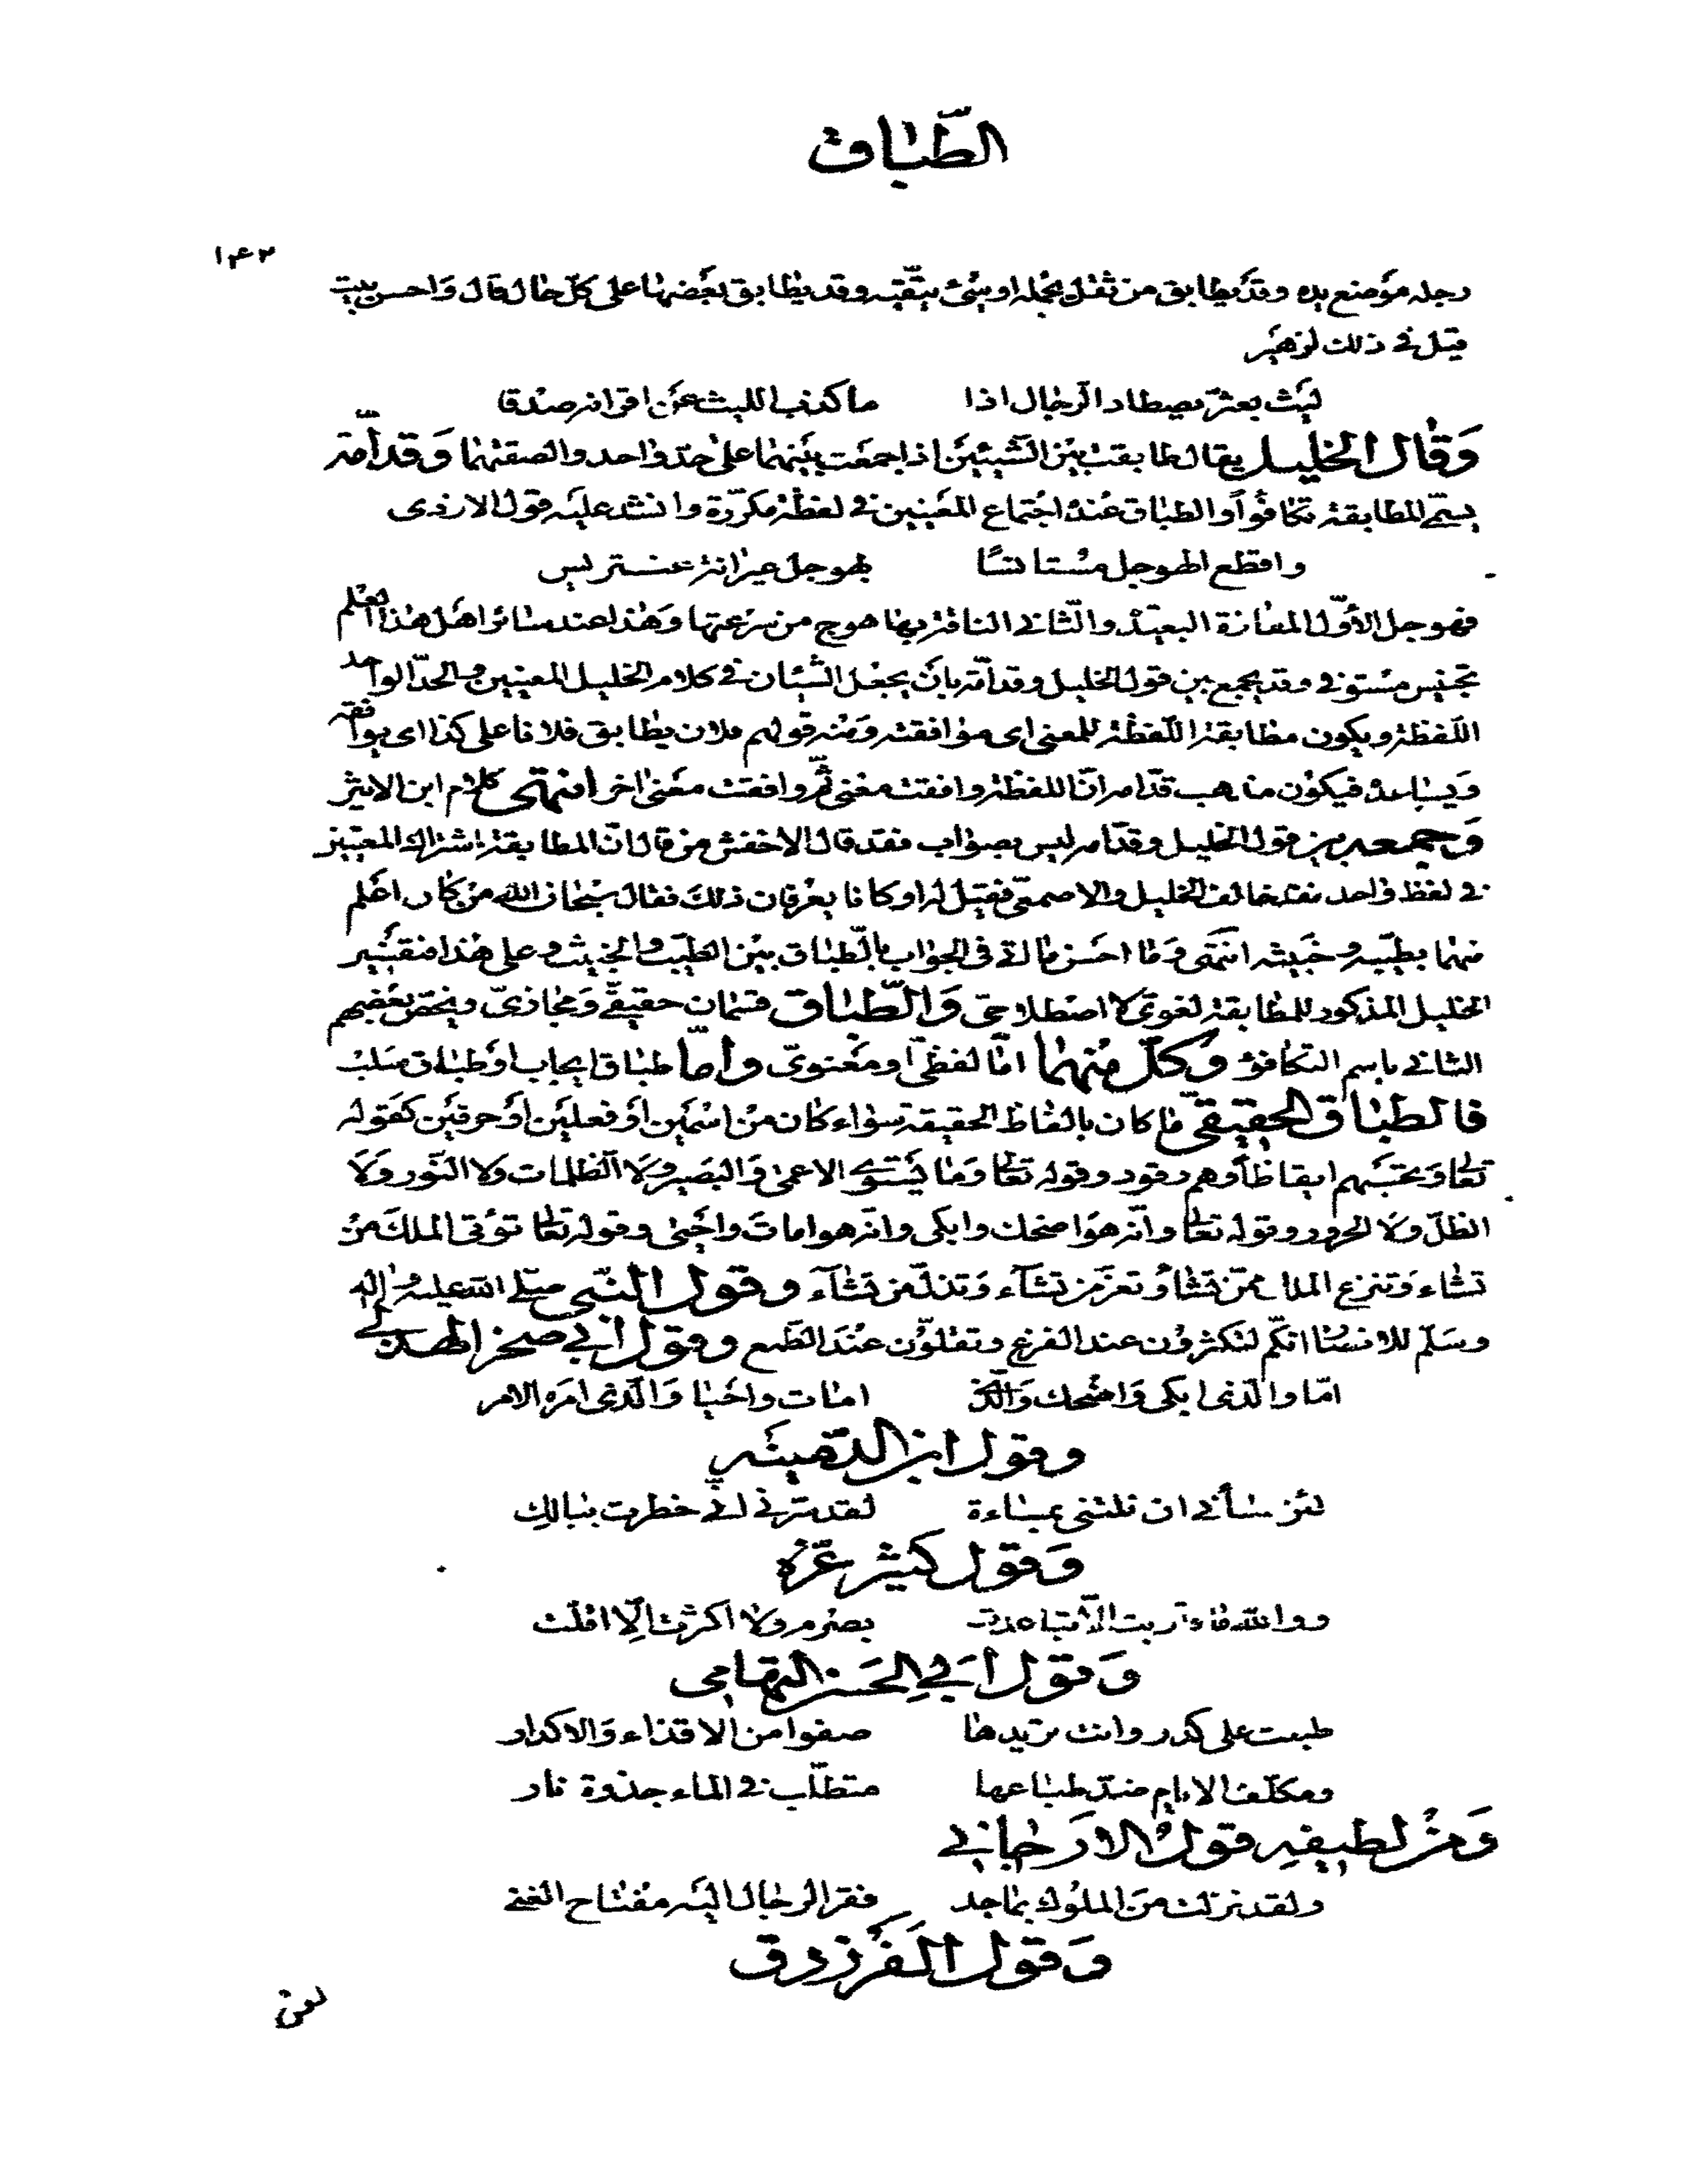 الطّباق
١٤٢
رجله موضع يده وقد يطابق من ثقل يحمله او شئ يتّقيه وقد يطابق بعضها على كلّ حال قال وَاحسن بيت
قيل فى ذلك لزهير
ليث بعثّر يصطاد الرّجال اذا ما كذب الليث عن اقرانه صدقا
وَقال الخليل يقال طابقت بين الشّيئين اذا جمعت بينهما على حدّ واحد والصقتهما وَقدامة
يسمّى المطابقة تكافؤاً والطباق عنده اجتماع المعنيين فى لفظة مكرّرة وانشد عليه قول الازدى
واقطع الهوجل مستانسًا بهوجل عيرانة عنتريس
فهوجل الأوّل المفازة البعيدة والثّانى الناقة بها هوج من سرعتها وَهذا عند سائر اهل هذا العلم
تجنيس مستوفى وقد يجمع بين قول الخليل وقدامة بان يجعل الشّيئان فى كلام الخليل المعنيين والحدّ الواحد
اللّفظة ويكون مطابقة اللّفظة للمعنى اى موافقته وَمنه قولهم فلان يطابق فلانا على كذا اى يوافقه
وَيساعده فيكون مذهب قدامه انّ اللفظة وافقت معنى ثمّ وافقت معنى اخر انتهى كلام ابن الاثير
وَجمعه بين قول الخليل وقدامه ليس بصواب فقد قال الاخفش من قال انّ المطابقة اشتراك المعنيين
فى لفظ واحد فقد خالف الخليل والاصمعى فقيل له اوكانا يعرفان ذلك فقال سبحان الله من كان اعلم
منهما بطيّبه وخبيثه انتهى وَما احسن ما اتى فى الجواب بالطّباق بين الطيّب والخبيث وعلى هذا فتفسير
الخليل المذكور للمطابقة لغوى لا اصطلاحى وَالطّباق قسمان حقيقىّ وَمجازىّ ويخصّ بعضهم
الثانى باسم التكافؤ وكلّ منهما امّا لفظىّ او معنوىّ وامّا طباق ايجاب او طباق سلب
فالطباق الحقيقى ما كان بالفاظ الحقيقة سواء كان من اسمين او فعلين او حرفين كقوله
تعالى وَتحسبهم ايقاظاً وهم رقود وقوله تعالى وَما يستوى الاعمى وَالبصير ولا الظلمات ولا النّور وَلا
الظلّ ولا الحرور وقوله تعالى وانّه هو اضحك وابكى وانّه هو امات واحيى وقوله تعالى تؤتى الملك من
تشاء وَتنزع الملك ممّن تشاء وتعزّ من تشاء وَتذلّ من تشاء وقول النّبى صلّى الله عليه واله
وسلّم للانصار انكم لتكثرون عند الفزع وتقلّون عند الطّمع وقول ابى صخر الهذلى
امّا والّذى ابكى وَاضحك وَالّذى امات واحيا وَالّذى امره الامر
وقول ابن الدّمينه
لئن ساءنى ان نلتنى بمساءة لقد سرّنى انّى خطرت ببالك
وَقول كثير عزّه
ووالله ما قاربت الّا تباعدت بصرم ولا اكثرت الّا اقلّت
وَقول ابى الحَسن التهامى
طبعت على كدر وانت تريدها صفوا من الاقذاء وَالاكدار
ومكلّف الايام ضدّ طباعها متطلّب فى الماء جذوة نار
وَمن لطيفه قول الارجانى
ولقد نزلت من الملوك بماجد فقر الرجال اليه مفتاح الغنى
وَقول الفرزدق
لعن